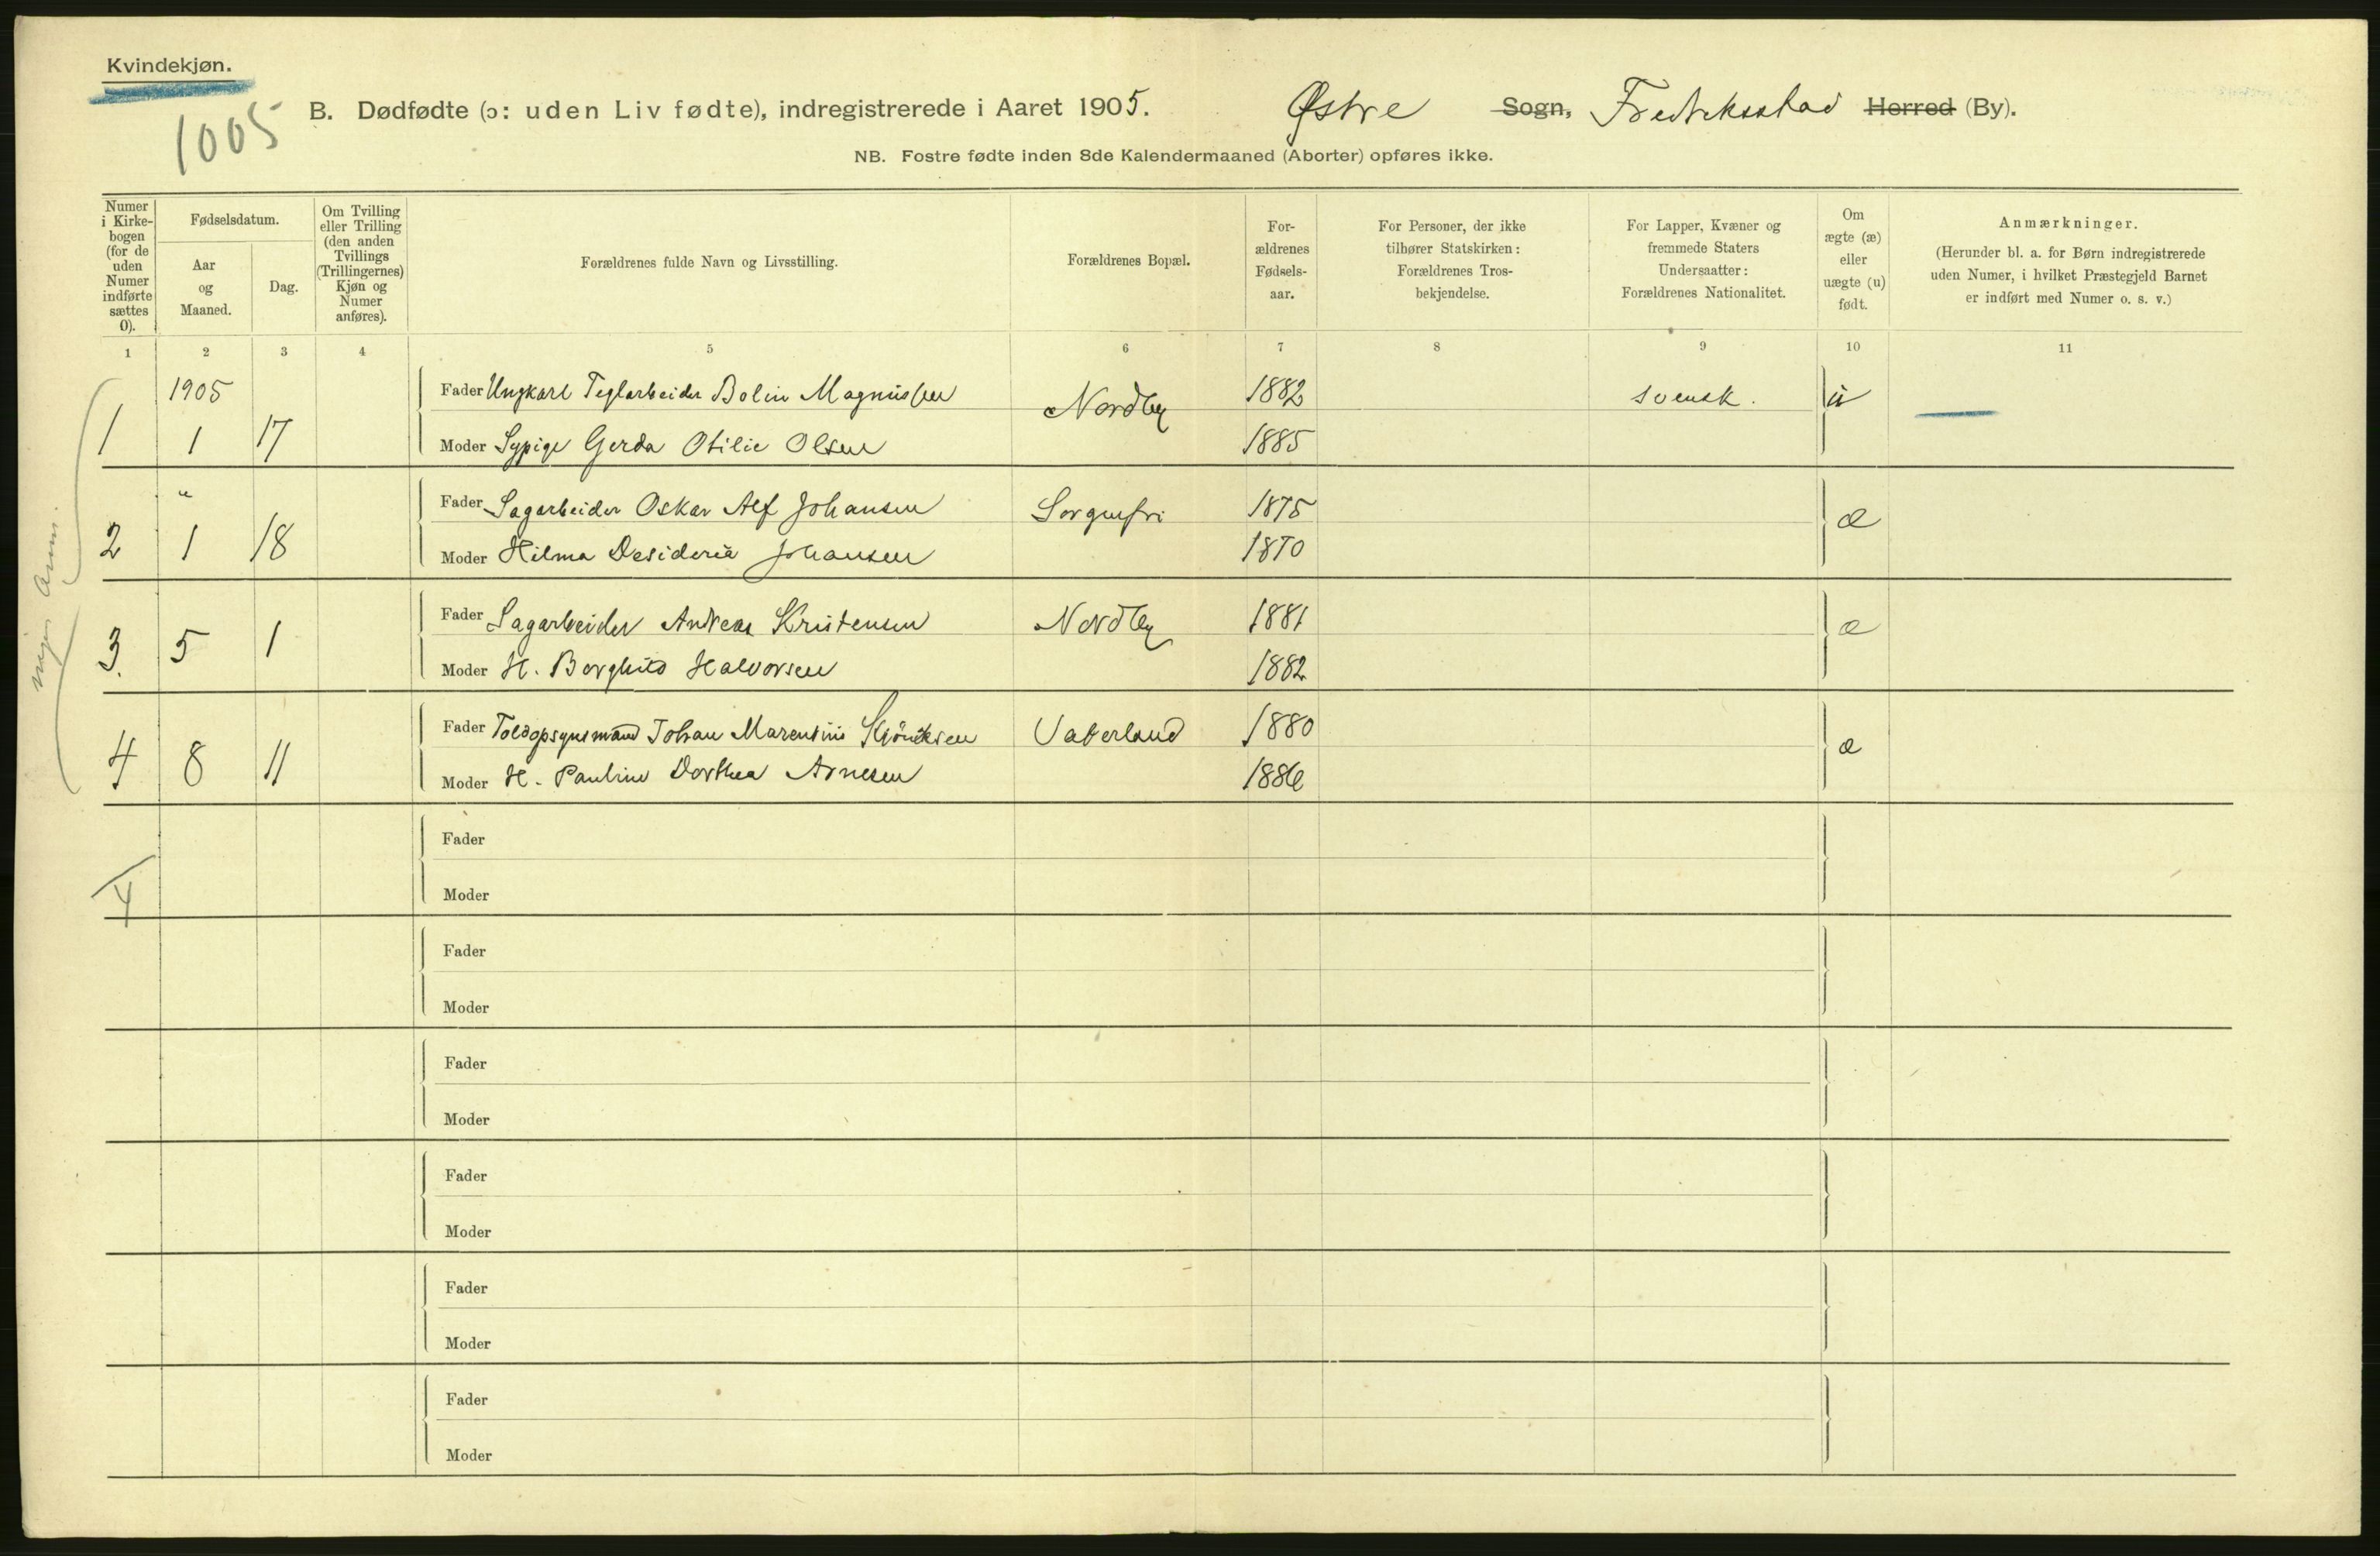 Kvindekjøn.
1005
B. Dødfødte (ɔ: uden Liv fødte), indregistrerede i Aaret 1905. Østre Sogn, Fredriksstad Herred (By).
NB. Fostre fødte inden 8de Kalendermaaned (Aborter) opføres ikke.
Numer i Kirke-bogen (for de uden Numer indførte sættes 0).
Fødselsdatum.
Aar og Maaned.
Dag.
Om Tvilling eller Trilling (den anden Tvillings (Trillingernes) Kjøn og Numer anføres).
Forældrenes fulde Navn og Livsstilling.
Forældrenes Bopæl.
For-ældrenes Fødsels-aar.
For Personer, der ikke tilhører Statskirken: Forældrenes Tros-bekjendelse.
For Lapper, Kvæner og fremmede Staters Undersaatter: Forældrenes Nationalitet.
Om ægte (æ) eller uægte (u) født.
Anmærkninger.
(Herunder bl. a. for Børn indregistrerede uden Numer, i hvilket Præstegjeld Barnet er indført med Numer o. s. v.)
1 2 3 4 5 6 7 8 9 10 11
1905
Fader Ungkarl Teglarbeider Bolin Magnussen Nordby 1882 svensk. u
1 1 17 Moder Sypige Gerda Otilie Olsen 1885
"
Fader Sagarbeider Oskar Alf Johansen Sorgenfri 1875 æ
2 1 18 Moder Hilma Desideria Johansen 1870
Fader Sagarbeider Andreas Kristensen Nordby 1881 æ
3. 5 1 Moder H. Borghild Halvorsen 1882
Fader Toldopsynsmand Johan Marensius Vaterland 1880 æ
4 8 11 Moder H. Pauline Dorthea Arnesen 1886
Fader
4
Moder
Fader
Moder
Fader
Moder
Fader
Moder
Fader
Moder
Fader
Moder